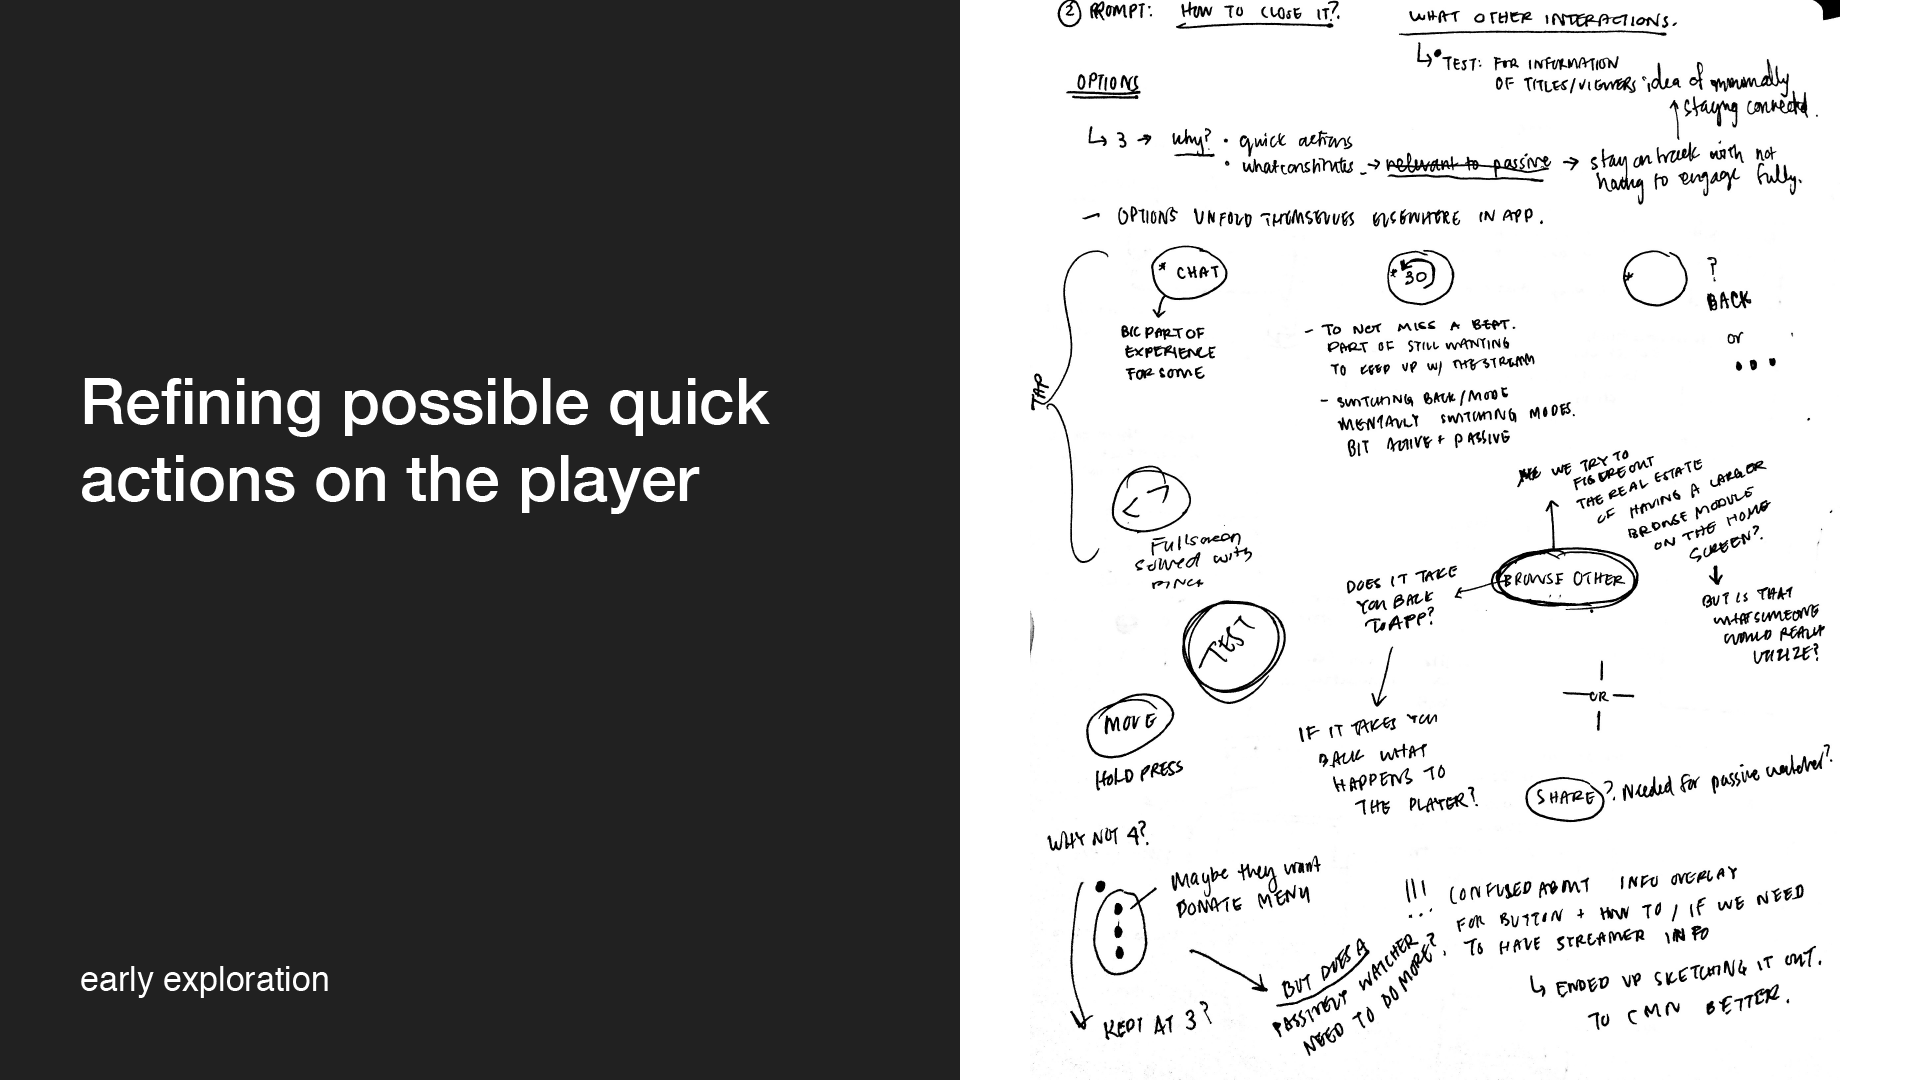 Refining possible quick
actions on the player
early exploration
2 PROMPT: HOW TO CLOSE IT?.
WHAT OTHER INTERACTIONS.
↳ • TEST: FOR INFORMATION
OF TITLES/VIEWERS idea of minimally
staying connected.
OPTIONS
↳ 3 → why? • quick actions
• what constitutes → relevant to passive → stay on track with not
having to engage fully.
– OPTIONS UNFOLD THEMSELVES ELSEWHERE IN APP.
TAP
* CHAT
BIG PART OF
EXPERIENCE
FOR SOME
* 30
– TO NOT MISS A BEAT.
PART OF STILL WANTING
TO KEEP UP W/ THE STREAM
– SWITCHING BACK/MODE
MENTALLY SWITCHING MODES.
BIT ACTIVE + PASSIVE
*
?
BACK
or
•••
< >
Fullscreen
solved with
PINCH
WE TRY TO
FIGURE OUT
THE REAL ESTATE
OF HAVING A LARGER
BROWSE MODULE
ON THE HOME
SCREEN?.
BROWSE OTHER
DOES IT TAKE
YOU BACK
TO APP?
BUT IS THAT
WHAT SOMEONE
WOULD REALLY
UTILIZE?
TEST
MOVE
HOLD PRESS
IF IT TAKES YOU
BACK WHAT
HAPPENS TO
THE PLAYER?
OR
SHARE ?. Needed for passive watcher?.
WHY NOT 4?
Maybe they want
DONATE MENU
KEPT AT 3?
BUT DOES A
PASSIVELY WATCHER
NEED TO DO MORE?
!!! CONFUSED ABOUT INFO OVERLAY
FOR BUTTON + HOW TO / IF WE NEED
TO HAVE STREAMER INFO
↳ ENDED UP SKETCHING IT OUT.
TO CMN BETTER.